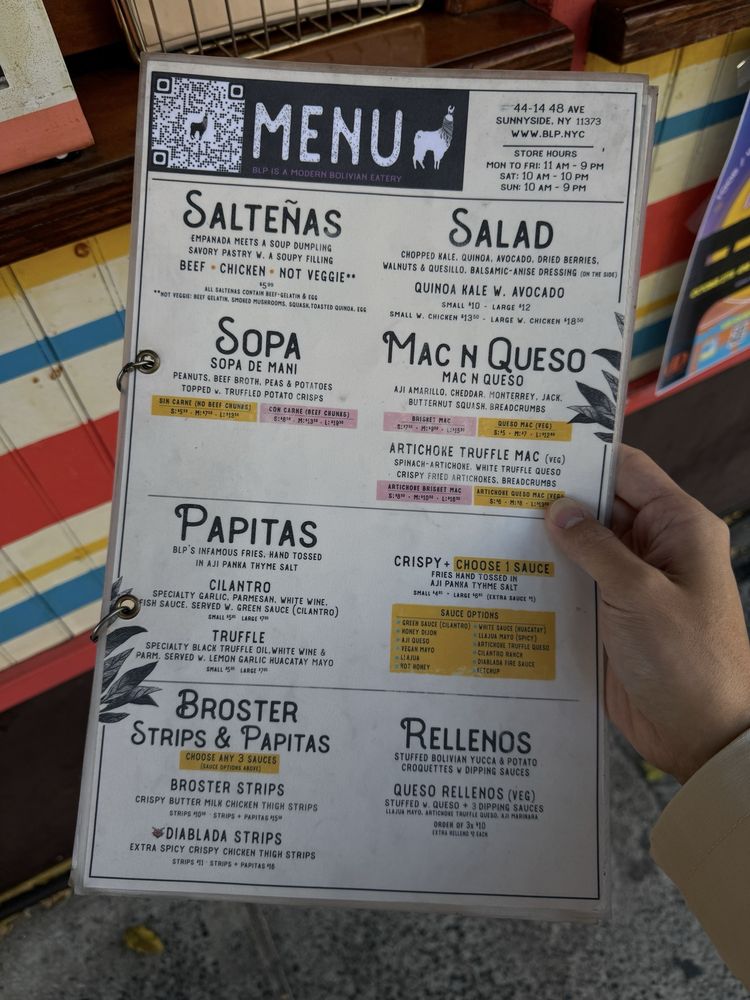 MENU
BLP IS A MODERN BOLIVIAN EATERY
44-14 48 AVE
SUNNYSIDE, NY 11373
WWW.BLP.NYC
STORE HOURS
MON TO FRI: 11 AM - 9 PM
SAT: 10 AM - 10 PM
SUN: 10 AM - 9 PM
SALTEÑAS
EMPANADA MEETS A SOUP DUMPLING
SAVORY PASTRY W. A SOUPY FILLING
BEEF • CHICKEN • NOT VEGGIE**
$5.99
ALL SALTENAS CONTAIN BEEF-GELATIN & EGG
**NOT VEGGIE: BEEF GELATIN, SMOKED MUSHROOMS, SQUASH, TOASTED QUINOA, EGG
SALAD
CHOPPED KALE, QUINOA, AVOCADO, DRIED BERRIES,
WALNUTS & QUESILLO, BALSAMIC-ANISE DRESSING (ON THE SIDE)
QUINOA KALE W. AVOCADO
SMALL $10 - LARGE $12
SMALL W. CHICKEN $13.50 - LARGE W. CHICKEN $18.50
SOPA
SOPA DE MANI
PEANUTS, BEEF BROTH, PEAS & POTATOES
TOPPED W. TRUFFLED POTATO CRISPS
SIN CARNE (NO BEEF CHUNKS)
CON CARNE (BEEF CHUNKS)
MAC N QUESO
MAC N QUESO
AJI AMARILLO, CHEDDAR, MONTERREY, JACK,
BUTTERNUT SQUASH, BREADCRUMBS
BRISKET MAC
QUESO MAC (VEG)
ARTICHOKE TRUFFLE MAC (VEG)
SPINACH-ARTICHOKE, WHITE TRUFFLE QUESO
CRISPY FRIED ARTICHOKES, BREADCRUMBS
ARTICHOKE BRISKET MAC
ARTICHOKE QUESO MAC (VEG)
PAPITAS
BLP'S INFAMOUS FRIES, HAND TOSSED
IN AJI PANKA THYME SALT
CILANTRO
SPECIALTY GARLIC, PARMESAN, WHITE WINE,
FISH SAUCE, SERVED W. GREEN SAUCE (CILANTRO)
SMALL LARGE
TRUFFLE
SPECIALTY BLACK TRUFFLE OIL, WHITE WINE &
PARM. SERVED W. LEMON GARLIC HUACATAY MAYO
SMALL LARGE
CRISPY + CHOOSE 1 SAUCE
FRIES HAND TOSSED IN
AJI PANKA TYHME SALT
SMALL LARGE (EXTRA SAUCE $1)
SAUCE OPTIONS
GREEN SAUCE (CILANTRO)
HONEY DIJON
AJI QUESO
VEGAN MAYO
LLAJUA
HOT HONEY
WHITE SAUCE (HUACATAY)
LLAJUA MAYO (SPICY)
ARTICHOKE TRUFFLE QUESO
CILANTRO RANCH
DIABLADA FIRE SAUCE
KETCHUP
BROSTER
STRIPS & PAPITAS
CHOOSE ANY 3 SAUCES
(SAUCE OPTIONS ABOVE)
BROSTER STRIPS
CRISPY BUTTER MILK CHICKEN THIGH STRIPS
STRIPS STRIPS + PAPITAS
DIABLADA STRIPS
EXTRA SPICY CRISPY CHICKEN THIGH STRIPS
STRIPS $11 · STRIPS + PAPITAS $16
RELLENOS
STUFFED BOLIVIAN YUCCA & POTATO
CROQUETTES W DIPPING SAUCES
QUESO RELLENOS (VEG)
STUFFED W. QUESO + 3 DIPPING SAUCES
LLAJUA MAYO, ARTICHOKE TRUFFLE QUESO, AJI MARINARA
ORDER OF 3x $10
EXTRA RELLENO EACH